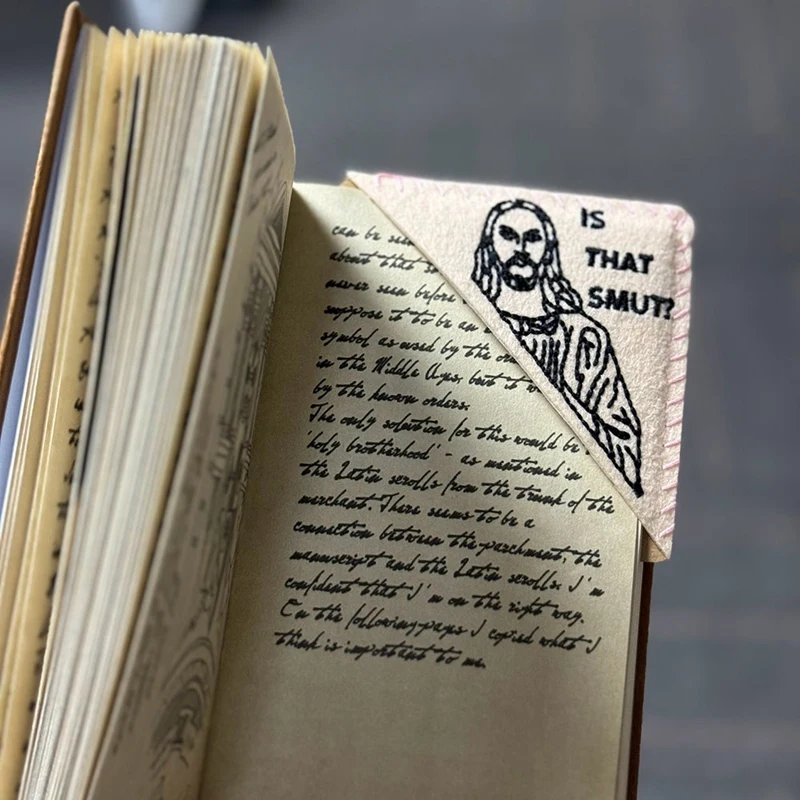 can be seen
about that so
never seen before
suppose it to be an
symbol as used by the
in the Middle Ages, but it
by the known orders.
The only solution for this would be
'holy brotherhood' - as mentioned in
the Latin scrolls from the trunk of the
merchant. There seems to be a
connection between the parchment, the
manuscript and the Latin scrolls. I'm
confident that I'm on the right way.
On the following pages I copied what I
think is important to me.
IS
THAT
SMUT?